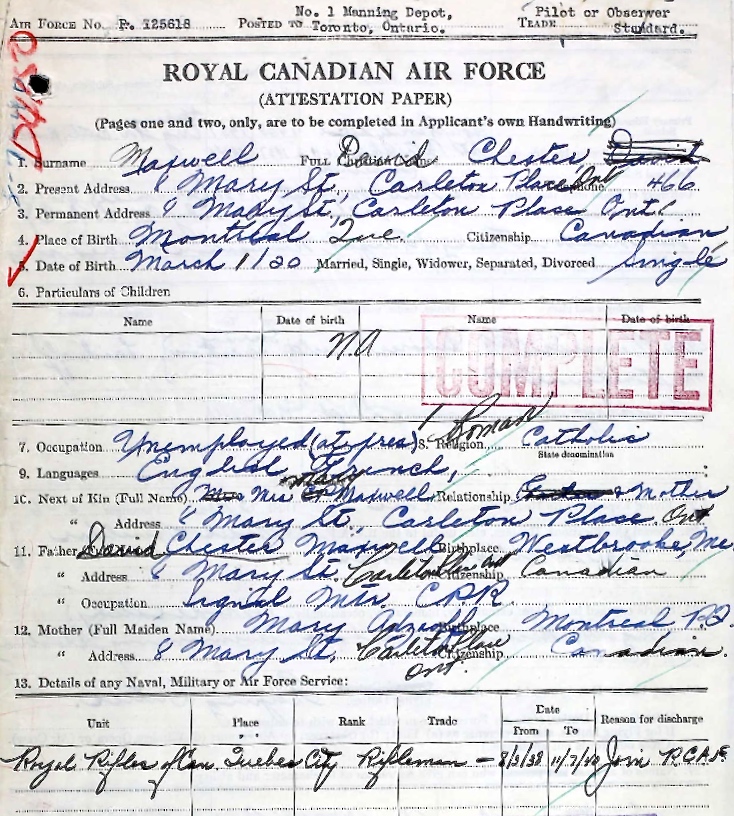 AIR FORCE NO. R. 125618 POSTED TO No. 1 Manning Depot, Toronto, Ontario. TRADE Pilot or Observer Standard.
ROYAL CANADIAN AIR FORCE
(ATTESTATION PAPER)
(Pages one and two, only, are to be completed in Applicant's own Handwriting)
1. Surname Maxwell FULL Christian Name David Chester David
2. Present Address 8 Mary St, Carleton Place Ont Telephone 466
3. Permanent Address 8 Mary St, Carleton Place Ont
4. Place of Birth Montreal Que. Citizenship Canadian
5. Date of Birth March 1/20 Married, Single, Widower, Separated, Divorced Single
6. Particulars of Children
Name Date of birth Name Date of birth
N.A
COMPLETE
7. Occupation Unemployed (at pres) 8. Religion Roman Catholic
State denomination
9. Languages English French,
10. Next of Kin (Full Name) Mrs Mary Maxwell Relationship Mother
" Address 8 Mary St, Carleton Place. Ont
11. Father David Chester Maxwell Birthplace Westbrooke, Me.
" Address 8 Mary St. Carleton Place Ont Citizenship Canadian
" Occupation Signal Mtr. CPR
12. Mother (Full Maiden Name) Mary Birthplace Montreal P.Q.
" Address 8 Mary St, Carleton Place Ont. Citizenship Canadian.
13. Details of any Naval, Military or Air Force Service:
Unit Place Rank Trade Date From To Reason for discharge
Royal Rifles of Can. Quebec City Rifleman — Join R.C.A.F.